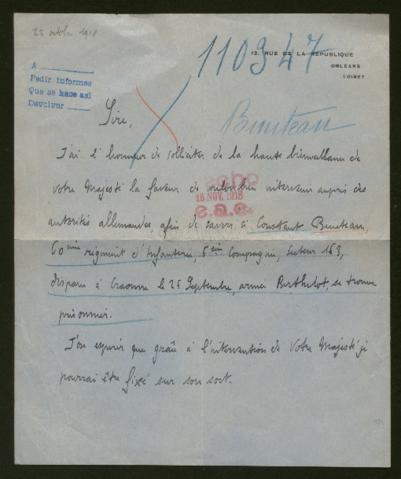 25 octobre 1918
110347
13, RUE DE LA RÉPUBLIQUE
ORLÉANS
LOIRET
A
Pedir informes
Que se hace así
Devolver
Sire,
Buneteau
J'ai l'honneur de solliciter de la haute bienveillance de
Votre Majesté la faveur de vouloir bien intervenir auprès des
autorités allemandes afin de savoir si Constant
18 NOV. 1918
60ème régiment d'Infanterie, 5ème Compagnie, Secteur 163,
disparu à Craonne le 25 Septembre, armée Berthelot, se trouve
prisonnier.
J'ose espérer que grâce à l'intervention de Votre Majesté je
pourrai être fixé sur son sort.